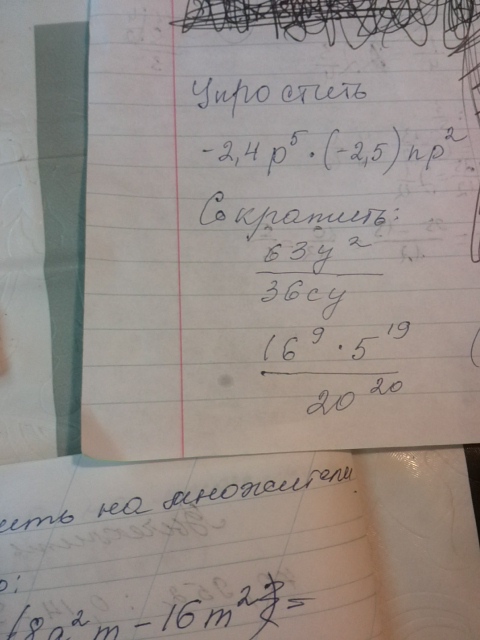 Упростить
-2,4 p⁵ · (-2,5) np²
Сократить:
63y²
36cy
16⁹ · 5¹⁹
20²⁰
ить на множители
18a²m - 16m²